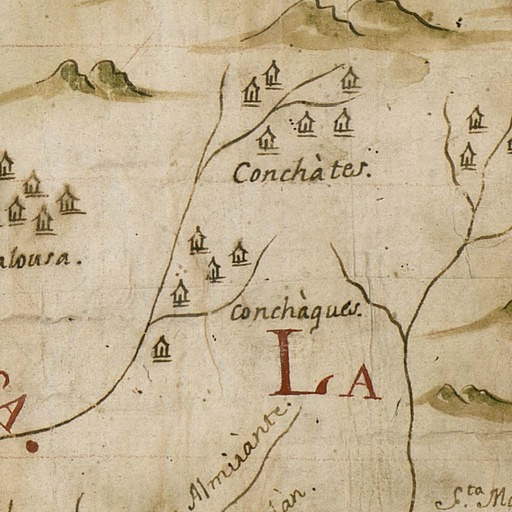 Conchàtes.
alousa.
Conchàques.
LA
A.
Almirante.
àn.
S.ta M